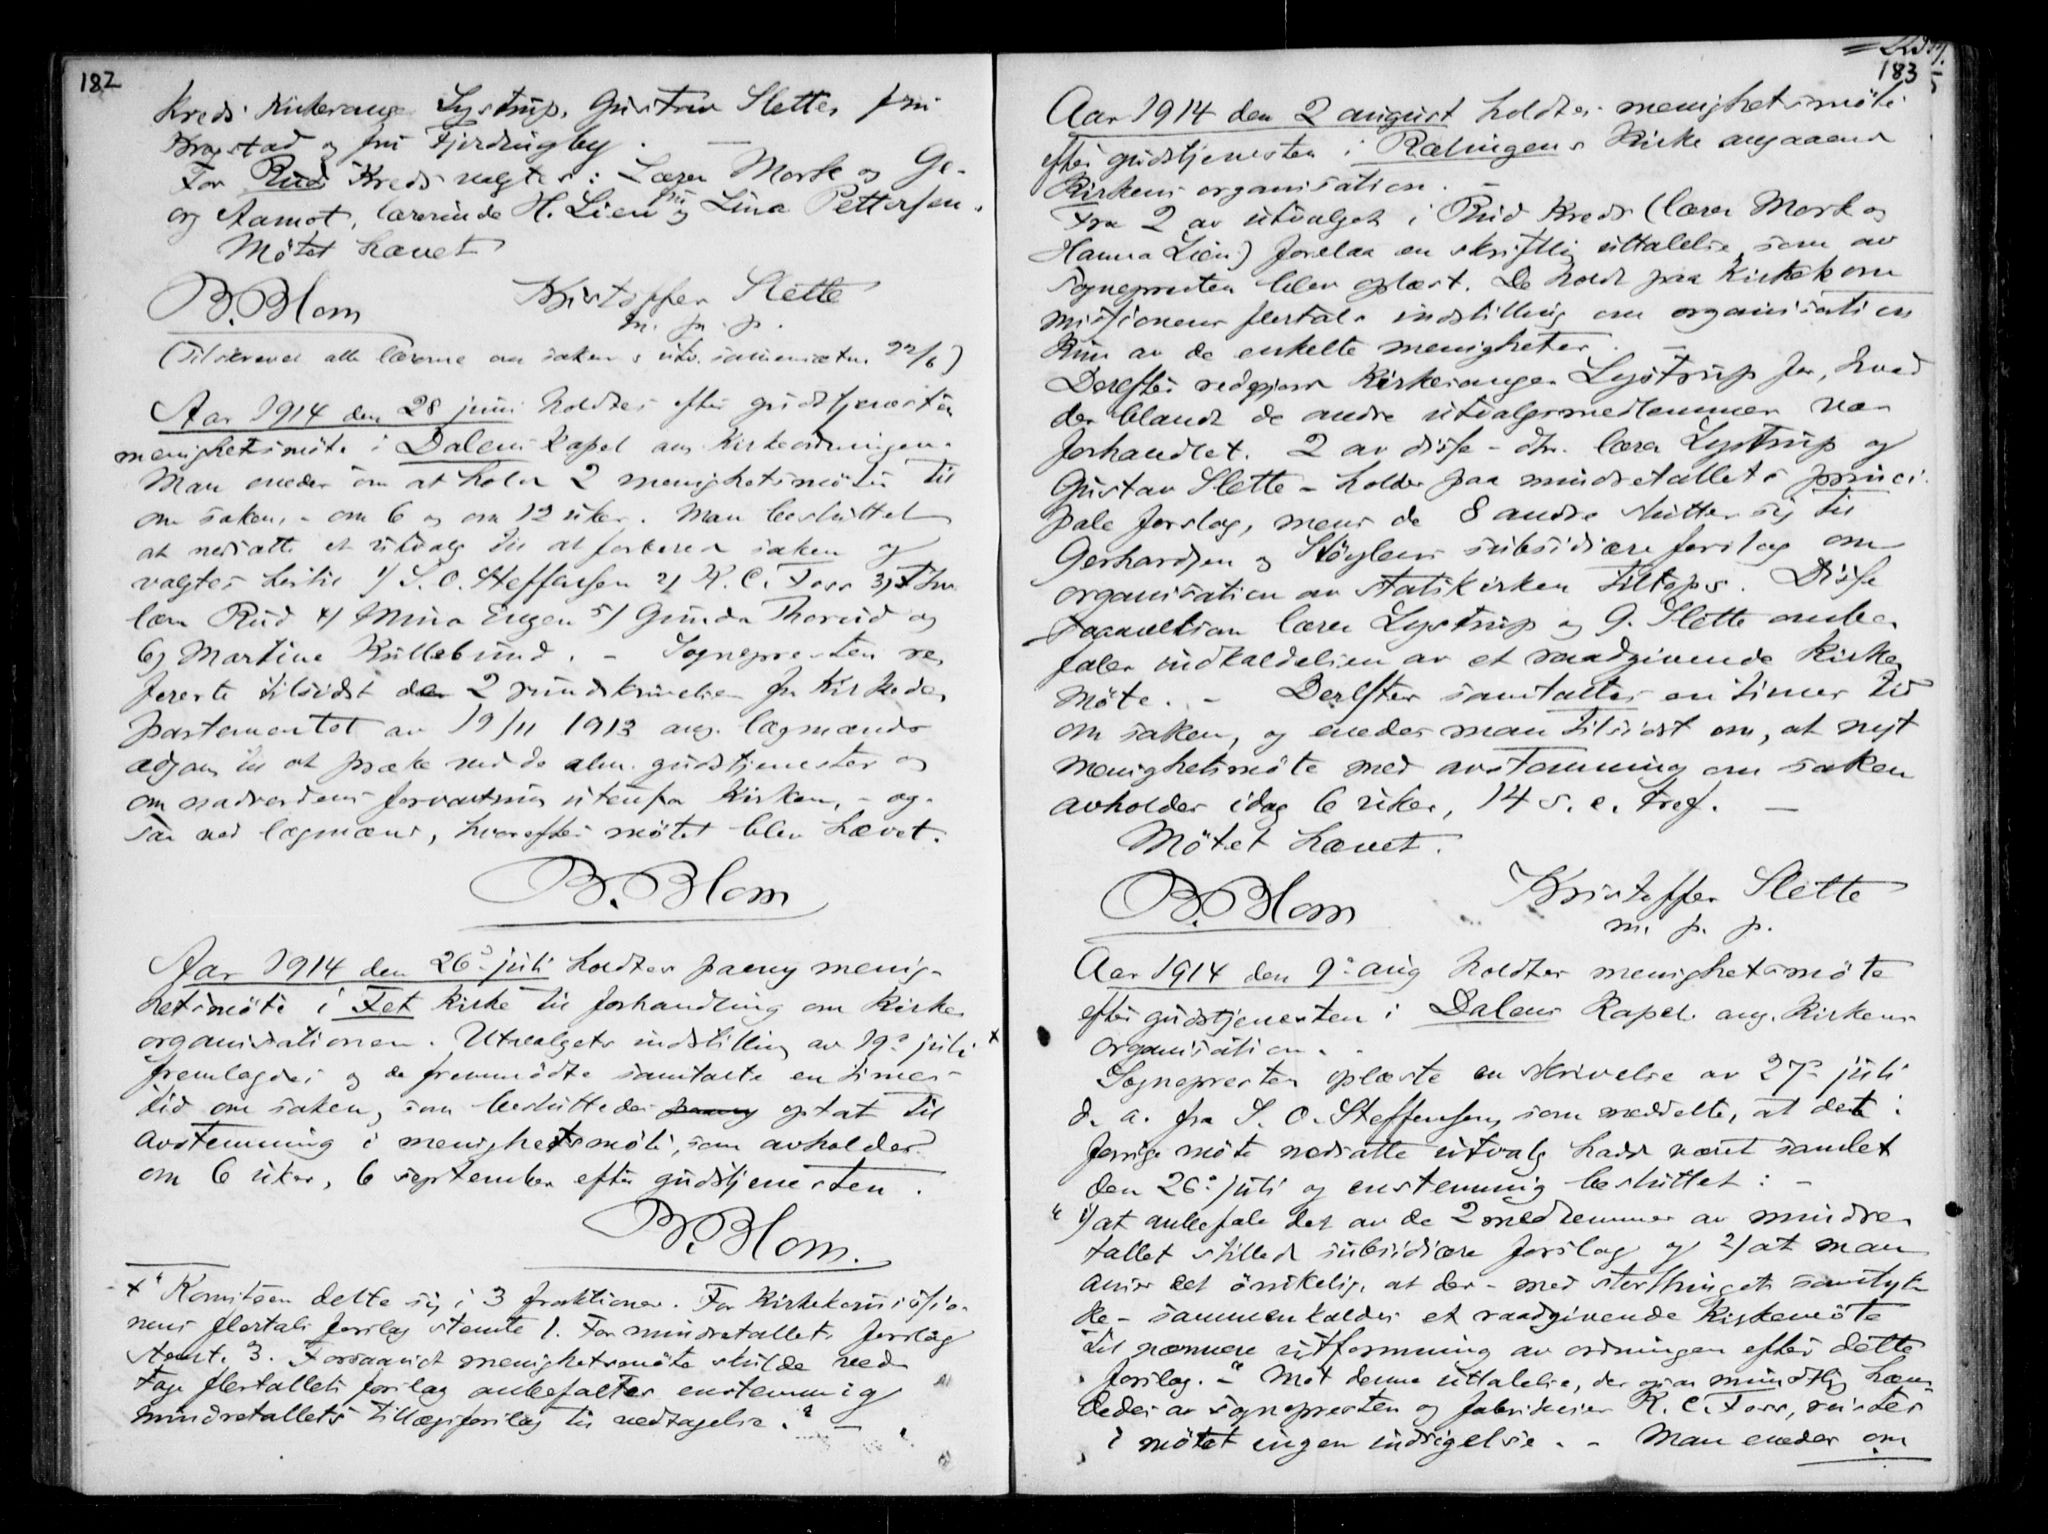 182
Kreds: Kirkesanger Lystrup, Gustav Slette, fru
Kragstad og fru Fjerdingby. —
For Rud Kreds valgtes: Lærer Mork og Ge-
org Aamot, lærerinde H. Lien og fru Lina Pettersen.
Mötet hævet
B. Blom Kristoffer Slette
m. p. p.
(Tilskrevet alle lærerne om saken & utv. sammensætn. 22/6)
Aar 1914 den 28 juni holdtes efter gudstjenesten
menighetsmöte i Dalens Kapel ang. Kirkeordningen.
Man enedes om at holde 2 menighetsmöter til
om saken, - om 6 og om 12 uker. Man besluttet
at nedsætte et utvalg til at forberede saken og
valgtes hertil 1/ S. O. Steffensen 2/ K. C. Foss 3/ Thv.
læn Rud 4/ Mina Engen 5/ Gunda Thorud og
6/ Martine Kullebund. - Sognepresten re-
fererte tilsidst de 2 rundskrivelser fra Kirkede-
partementet av 19/11 1913 ang. lægmænds
adgang til at præke ved de alm. gudstjenester og
om nadverdens forvaltning utenfor Kirken, - og-
saa ved lægmænd, hvorefter mötet blev hævet.
B. Blom
Aar 1914 den 26de juli holdtes paany menig-
hetsmöte i Fet Kirke til forhandling om Kirke-
organisationen. Utvalgets indstilling av 19de juli x
fremlagdes og de fremmödte samtalte en times-
tid om saken, som besluttedes paany optat til
avstemning i menighetsmöte, som avholdes
om 6 uker, 6 september efter gudstjenesten.
B. Blom.
x "Komiteen delte sig i 3 fraktioner. For Kirkekommissio-
nens flertals forslag stemte 1. For mindretallets forslag
stemte 3. Forsaavidt menighetsmöte skulde ved-
tage flertallets forslag anbefaltes enstemmig
mindretallets tillægsforslag til vedtagelse." —
183
Aar 1914 den 2 august holdtes menighetsmöte
efter gudstjenesten i Rælingens Kirke angaaende
Kirkens organisation. -
Fra 2 av utvalget i Rud Kreds (lærer Mork og
Hanna Lien) forelaa en skriftlig uttalelse, som av
sognepresten blev oplæst. De holdt paa Kirkekom
missionens flertals indstilling om organisation
kun av de enkelte menigheter. —
Derefter redegjorde Kirkesanger Lystrup for, hvad
der blandt de andre utvalgsmedlemmer var
forhandlet. 2 av disse - dhr. lærer Lystrup og
Gustav Slette - holder paa mindretallets princi-
pale forslag, mens de 8 andre slutter sig til
Gerhardsen og Stöylens subsidiære forslag om
organisation av statskirken tiltops. Disse
lærer Lystrup og G. Slette anbe-
faler indkaldelsen av et raadgivende Kirke-
möte. - Derefter samtaltes en times tid
om saken, og enedes man tilsidst om, at nyt
menighetsmöte med avstemning om saken
avholdes idag 6 uker, 14 s. e. tref. —
Mötet hævet.
B. Blom Kristoffer Slette
m. p. p.
Aar 1914 den 9de aug holdtes menighetsmöte
efter gudstjenesten i Dalens Kapel ang. Kirkens
organisation. -
Sognepresten oplæste en skrivelse av 27de juli
d. a. fra S. O. Steffensen, som meddelte, at det i
forrige möte nedsatte utvalg hadde været samlet
den 26de juli og enstemmig besluttet: -
" 1/ at anbefale det av de 2 medlemmer av mindre-
tallet stillede subsidiære forslag og 2/ at man
anser det önskelig, at der - med storthingets samtyk-
ke - sammenkaldes et raadgivende Kirkemöte
til nærmere utformning av ordningen efter dette
forslag. -" Mot denne uttalelse, der ogsaa mundtlig hæv-
dedes av sognepresten og fabrikeier K. C. Foss, reistes
i mötet ingen indsigelse. - Man enedes om